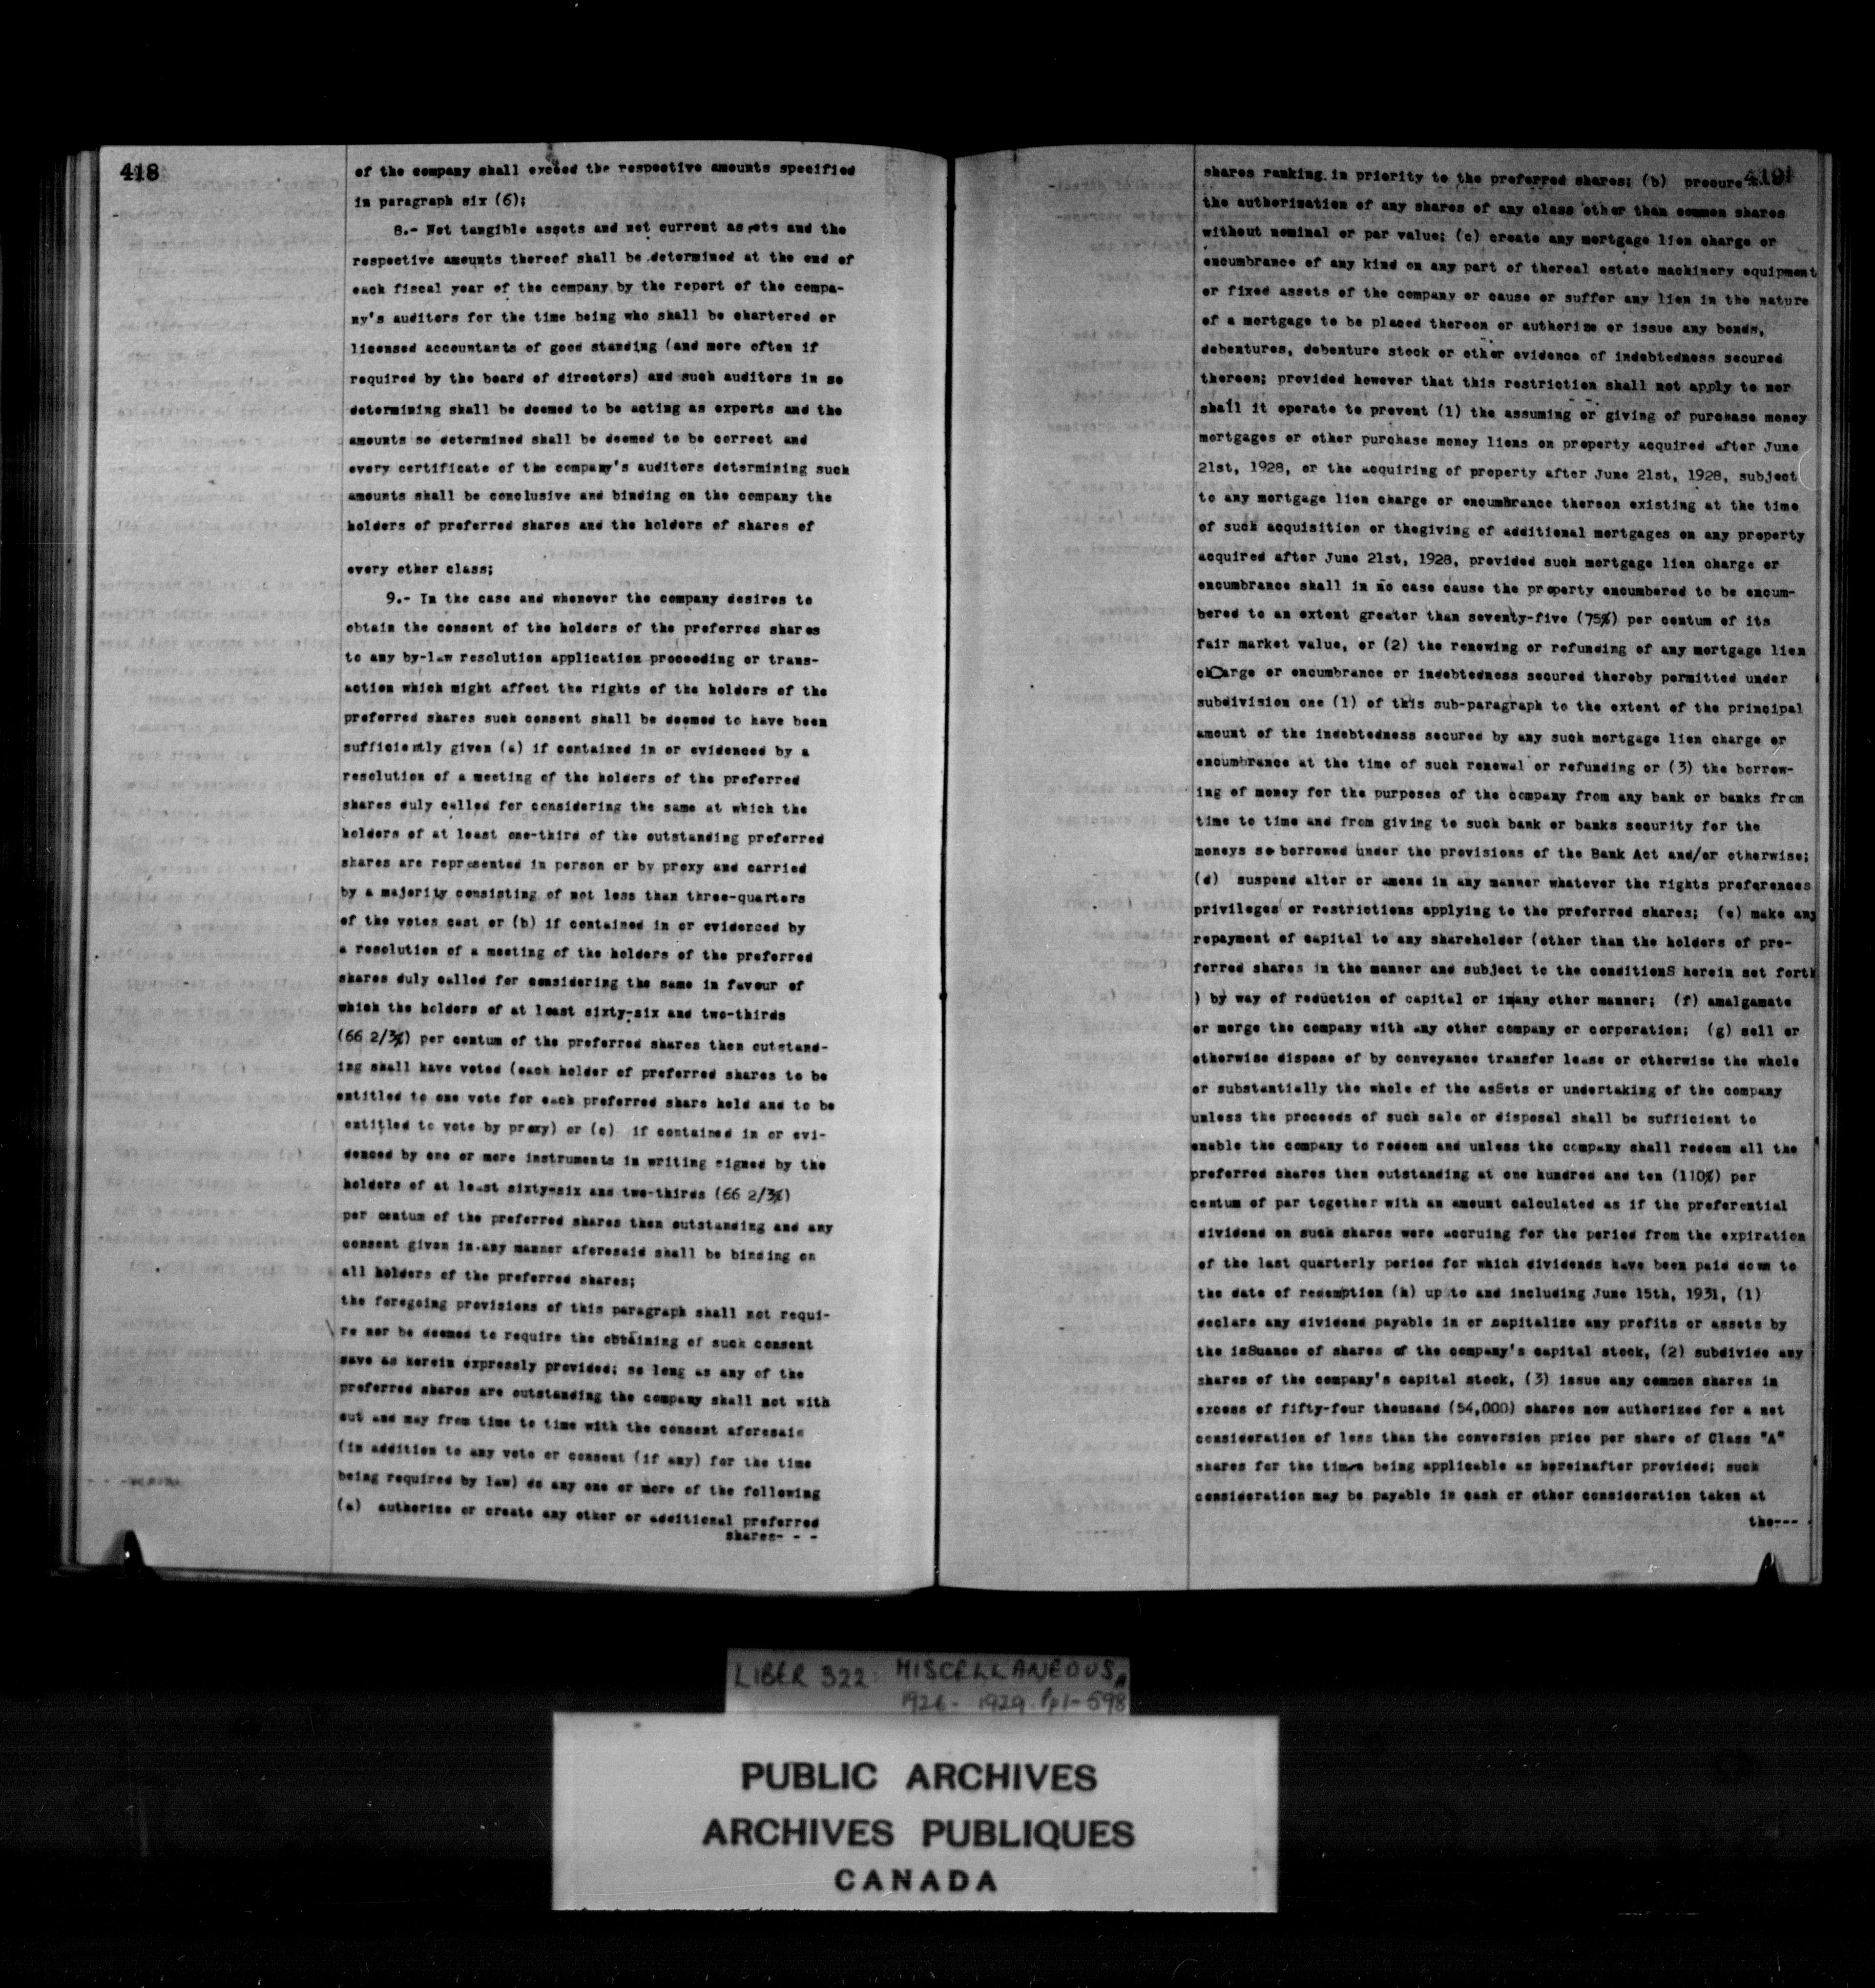 418
of the company shall exceed the respective amounts specified
in paragraph six (6);
8.- Net tangible assets and net current assets and the
respective amounts thereof shall be determined at the end of
each fiscal year of the company by the report of the compa-
ny's auditors for the time being who shall be chartered or
licensed accountants of good standing (and more often if
required by the board of directors) and such auditors in so
determining shall be deemed to be acting as experts and the
amounts so determined shall be deemed to be correct and
every certificate of the company's auditors determining such
amounts shall be conclusive and binding on the company the
holders of preferred shares and the holders of shares of
every other class;
9.- In the case and whenever the company desires to
obtain the consent of the holders of the preferred shares
to any by-law resolution application proceeding or trans-
action which might affect the rights of the holders of the
preferred shares such consent shall be deemed to have been
sufficiently given (a) if contained in or evidenced by a
resolution of a meeting of the holders of the preferred
shares duly called for considering the same at which the
holders of at least one-third of the outstanding preferred
shares are represented in person or by proxy and carried
by a majority consisting of not less than three-quarters
of the votes cast or (b) if contained in or evidenced by
a resolution of a meeting of the holders of the preferred
shares duly called for considering the same in favour of
which the holders of at least sixty-six and two-thirds
(66 2/3%) per centum of the preferred shares then outstand-
ing shall have voted (each holder of preferred shares to be
entitled to one vote for each preferred share held and to be
entitled to vote by proxy) or (c) if contained in or evi-
denced by one or more instruments in writing signed by the
holders of at least sixty-six and two-thirds (66 2/3%)
per centum of the preferred shares then outstanding and any
consent given in any manner aforesaid shall be binding on
all holders of the preferred shares;
the foregoing provisions of this paragraph shall not requi-
re nor be deemed to require the obtaining of such consent
save as herein expressly provided; so long as any of the
preferred shares are outstanding the company shall not with
out and may from time to time with the consent aforesaid
(in addition to any vote or consent (if any) for the time
being required by law) do any one or more of the following
(a) authorize or create any other or additional preferred
shares- - -
419
shares ranking in priority to the preferred shares; (b) procure
the authorization of any shares of any class other than common shares
without nominal or par value; (c) create any mortgage lien charge or
encumbrance of any kind on any part of thereal estate machinery equipment
or fixed assets of the company or cause or suffer any lien in the nature
of a mortgage to be placed thereon or authorize or issue any bonds,
debentures, debenture stock or other evidence of indebtedness secured
thereon; provided however that this restriction shall not apply to nor
shall it operate to prevent (1) the assuming or giving of purchase money
mortgages or other purchase money liens on property acquired after June
21st, 1928, or the acquiring of property after June 21st, 1928, subject
to any mortgage lien charge or encumbrance thereon existing at the time
of such acquisition or thegiving of additional mortgages on any property
acquired after June 21st, 1928, provided such mortgage lien charge or
encumbrance shall in no case cause the property encumbered to be encum-
bered to an extent greater than seventy-five (75%) per centum of its
fair market value, or (2) the renewing or refunding of any mortgage lien
charge or encumbrance or indebtedness secured thereby permitted under
subdivision one (1) of this sub-paragraph to the extent of the principal
amount of the indebtedness secured by any such mortgage lien charge or
encumbrance at the time of such renewal or refunding or (3) the borrow-
ing of money for the purposes of the company from any bank or banks from
time to time and from giving to such bank or banks security for the
moneys so borrowed under the provisions of the Bank Act and/or otherwise;
(d) suspend alter or amend in any manner whatever the rights preferences
privileges or restrictions applying to the preferred shares; (e) make any
repayment of capital to any shareholder (other than the holders of pre-
ferred shares in the manner and subject to the conditionS herein set forth
) by way of reduction of capital or inany other manner; (f) amalgamate
or merge the company with any other company or corporation; (g) sell or
otherwise dispose of by conveyance transfer lease or otherwise the whole
or substantially the whole of the asSets or undertaking of the company
unless the proceeds of such sale or disposal shall be sufficient to
enable the company to redeem and unless the company shall redeem all the
preferred shares then outstanding at one hundred and ten (110%) per
centum of par together with an amount calculated as if the preferential
dividend on such shares were accruing for the period from the expiration
of the last quarterly period for which dividends have been paid down to
the date of redemption (h) up to and including June 15th, 1931, (1)
declare any dividend payable in or capitalize any profits or assets by
the isSuance of shares of the company's capital stock, (2) subdivide any
shares of the company's capital stock, (3) issue any common shares in
excess of fifty-four thousand (54,000) shares now authorized for a net
consideration of less than the conversion price per share of Class "A"
shares for the time being applicable as hereinafter provided; such
consideration may be payable in cash or other consideration taken at
the---
LIBER 322: MISCELLANEOUS,
1926- 1929. Pp 1-598
PUBLIC ARCHIVES
ARCHIVES PUBLIQUES
CANADA